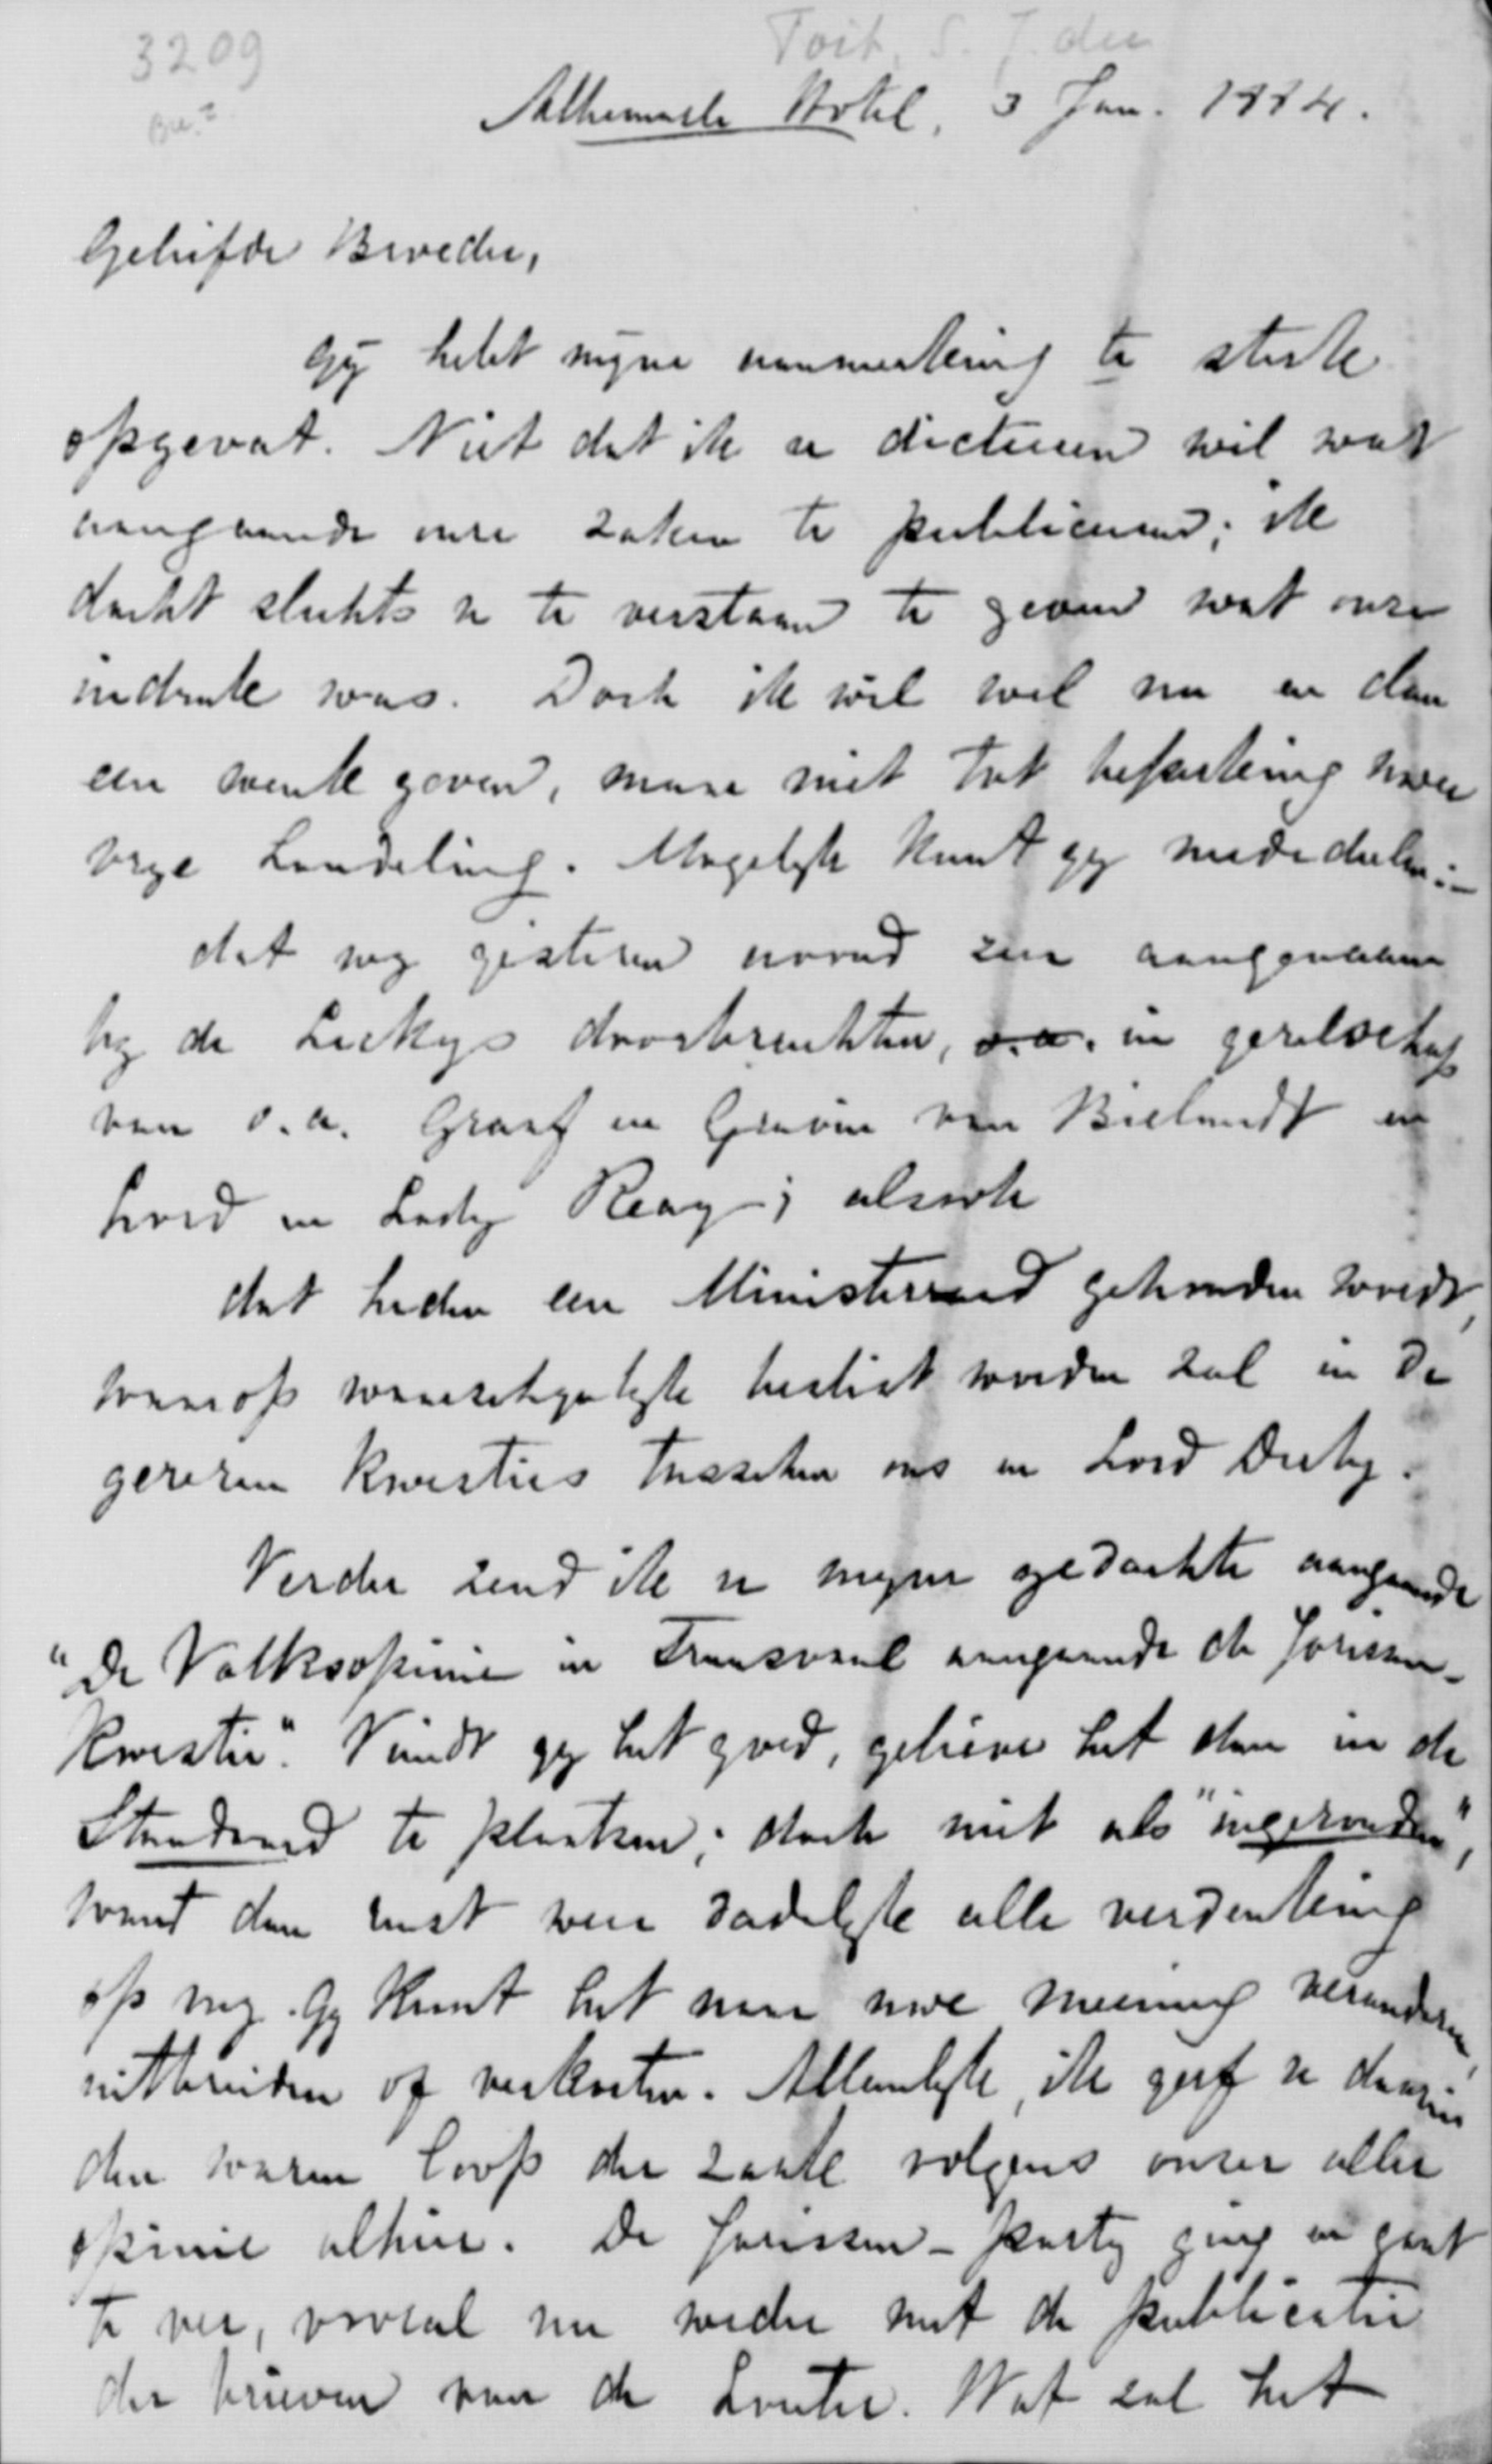 3209
Toit, S. J. du
Albemarle Hotel, 3 Jan. 1884.
Geliefde Broeder,
Gij hebt mijne aanmerking te sterk
opgevat. Niet dat ik u dicteeren wil wat
aangaande onze zaken te publiceeren; ik
dacht slechts u te verstaan te geven wat onze
indruk was. Doch ik wil wel nu en dan
een wenk geven, maar niet tot beperking uwer
vrije handeling. Mogelijk kunt gij mededeelen:-
dat wij gisteren avond zeer aangenaam
bij de Leckys doorbrachten, o.a. in gezelschap
van o.a. Graaf en Gravin van Bielandt en
Lord en Lady Reay; alsook
dat heden een Ministerraad gehouden wordt,
waarop waarschijnlijk beslist worden zal in de
gerezen kwesties tusschen ons en Lord Derby.
Verder zend ik u mijne gedachte aangaande
"De Volksopinie in Transvaal aangaande de Jorissen-
kwestie". Vindt gij het goed, gelieve het dan in de
Standaard te plaatsen; doch niet als "ingezonden",
want dan rust weer dadelijk alle verdenking
op mij. Gij kunt het naar uwe meening veranderen,
uitbreiden of verkorten. Allenlijk, ik geef u daarin
den waren loop der zaak volgens onzer aller
opinie alhier. De Jorissen-partij ging en gaat
te ver, vooral nu weder met de publicatie
der brieven van de Souter. Wat zal het